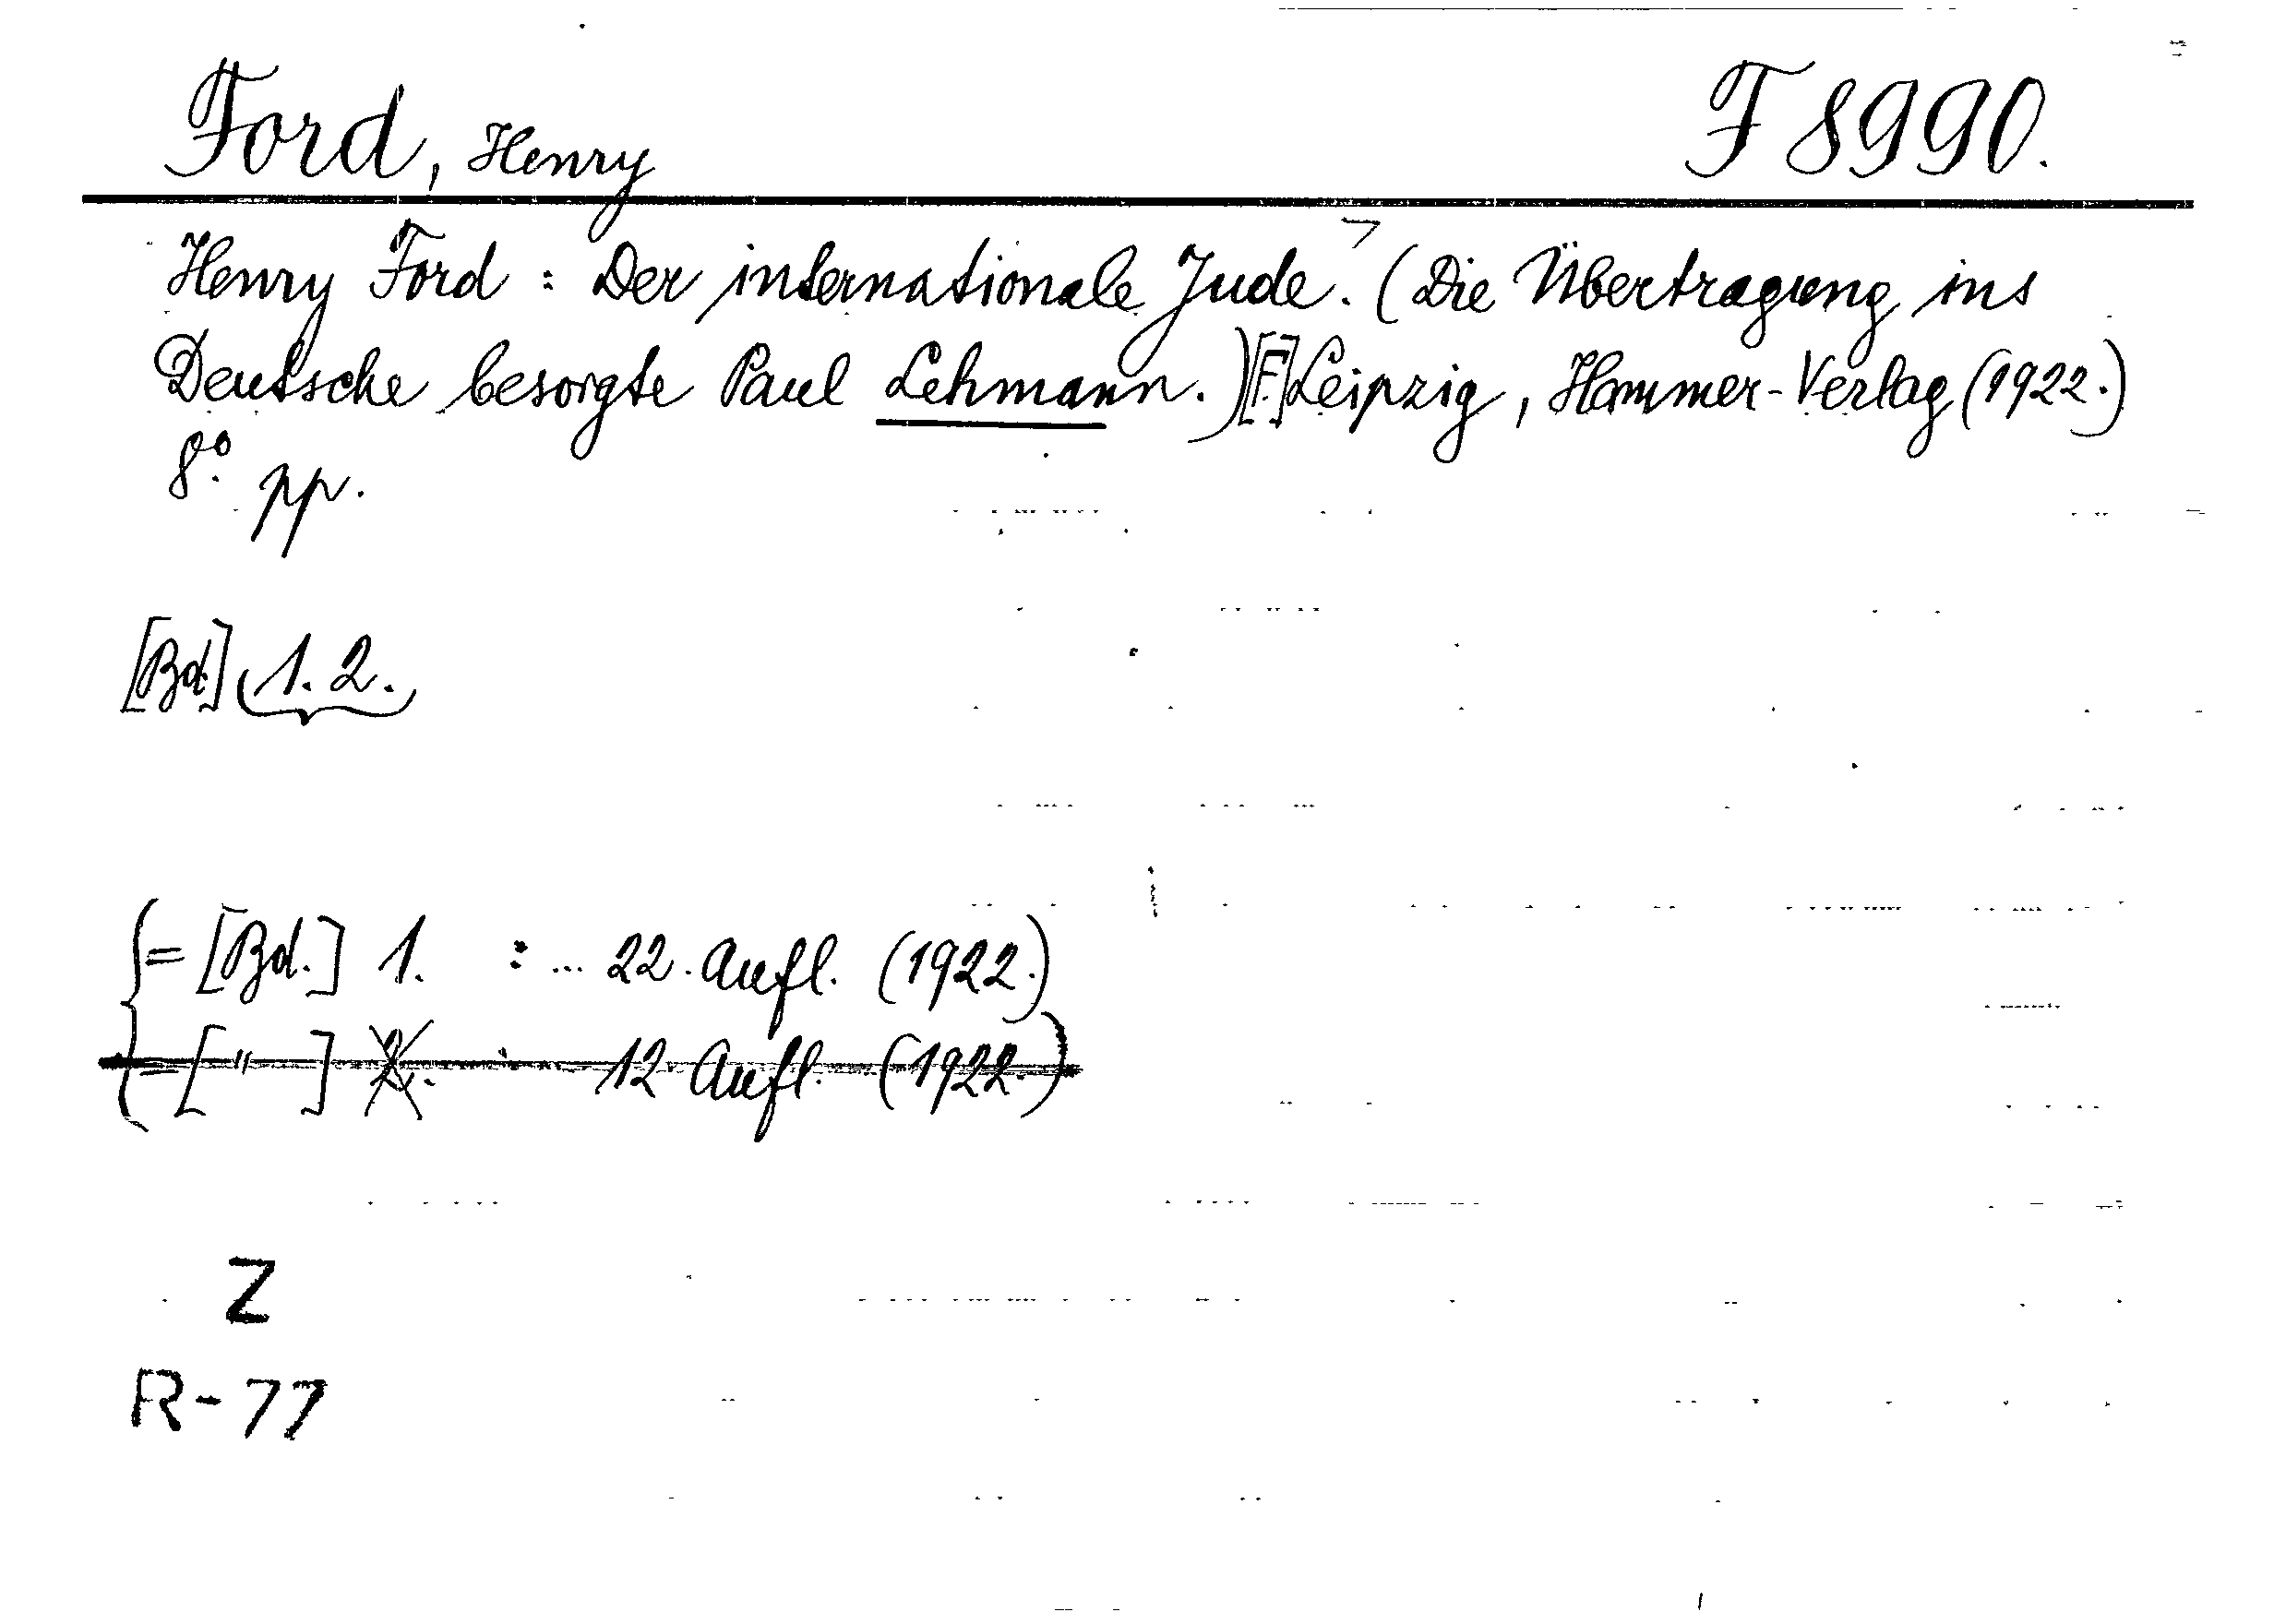 Ford, Henry F 8990.
Henry Ford : Der internationale Jude. (Die Übertragung ins
Deutsche besorgte Paul Lehmann.) [F.] Leipzig, Hammer-Verlag (1922.)
8.° pp.
[Bd.] 1. 2.
= [Bd.] 1. : ... 22. Aufl. (1922.)
= [ " ] 2. : ... 12. Aufl. (1922.)
Z
R-77